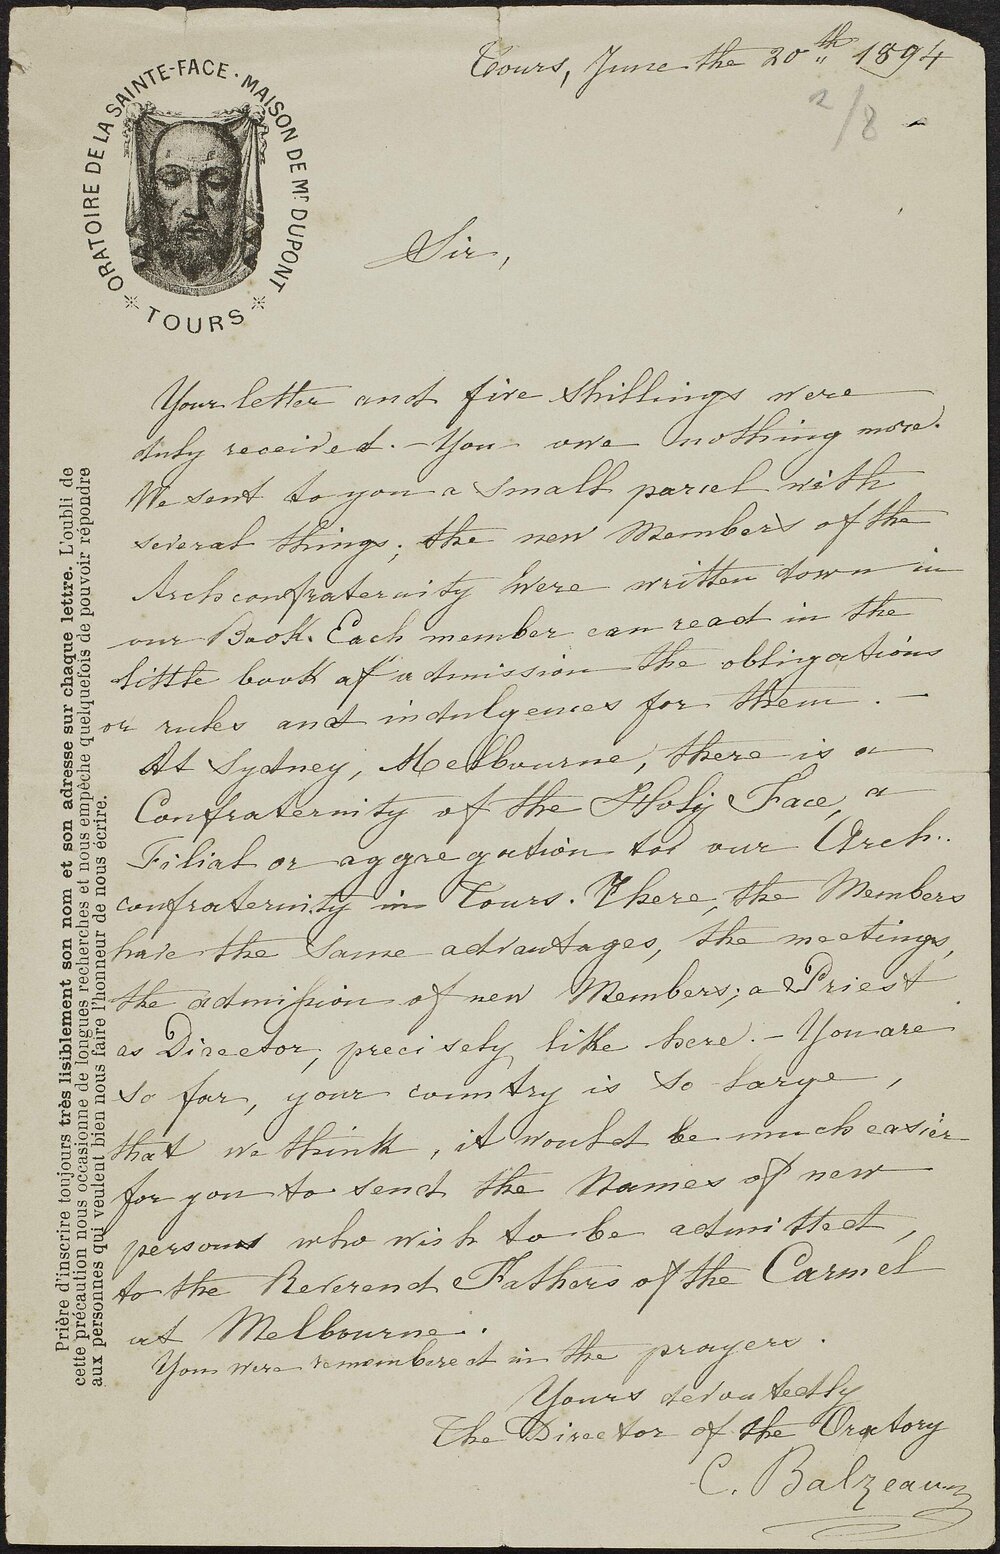 Tours, June the 20th 1894
2/8
ORATOIRE DE LA SAINTE-FACE · MAISON DE Mr DUPONT
TOURS
Sir,
Your letter and five shillings were
duly received. - You owe nothing more.
We sent to you a small parcel with
several things; the new Members of the
Archconfraternity were written down in
our Book. Each member can read in the
little book of admission the obligations
or rules and indulgences for them. -
At Sydney, Melbourne, there is a
Confraternity of the Holy Face, a
Filial or aggregation to our Arch..
confraternity in Tours. There, the Members
have the same advantages, the meetings,
the admission of new Members; a Priest
as Director, precisely like here. - You are
so far, your country is so large,
that we think, it would be much easier
for you to send the Names of new
persons who wish to be admitted,
to the Reverend Fathers of the Carmel
at Melbourne.
You were remembered in the prayers.
Yours devoutedly
The Director of the Oratory
C. Balzeau
Prière d'inscrire toujours très lisiblement son nom et son adresse sur chaque lettre. L'oubli de
cette précaution nous occasionne de longues recherches et nous empêche quelquefois de pouvoir répondre
aux personnes qui veulent bien nous faire l'honneur de nous écrire.